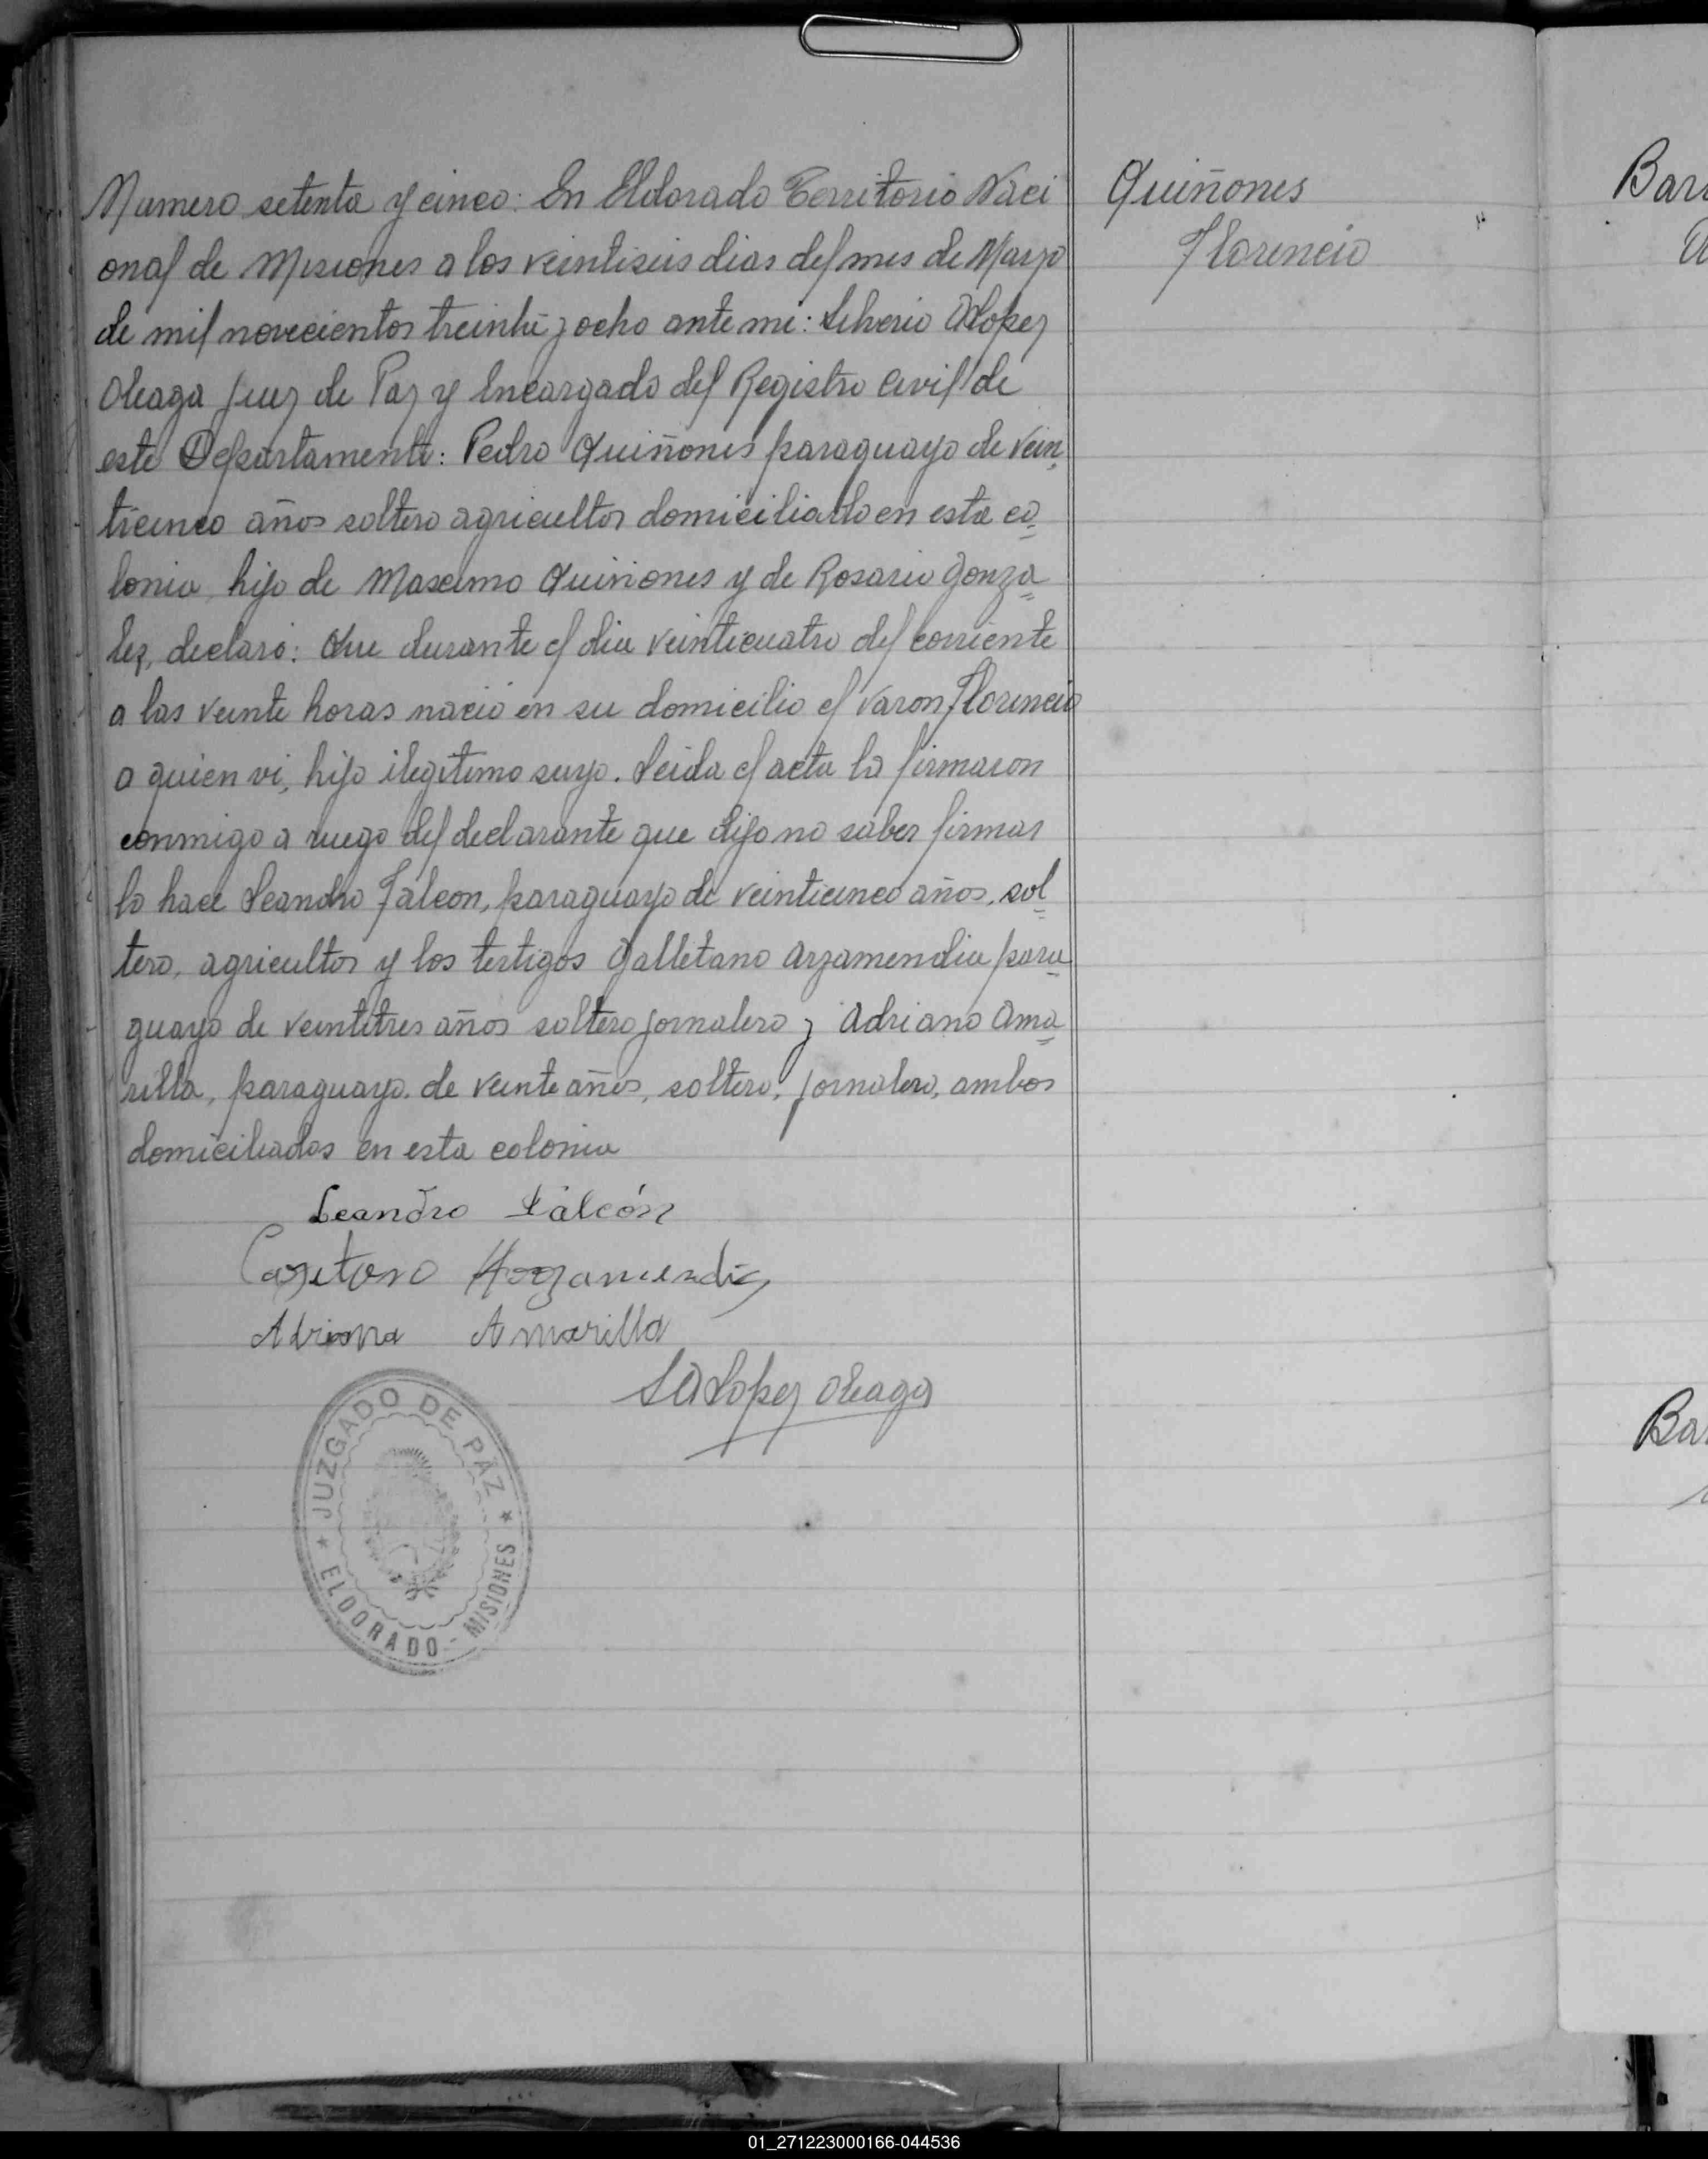 Numero setenta y cinco: En Eldorado Territorio Naci
onal de Misiones a los veintiseis dias del mes de Marzo
de mil novecientos treinta y ocho ante mi: Silverio A Lopez
Oleaga Juez de Paz y Encargado del Registro Civil de
este Departamento: Pedro Quiñones paraguayo de vein
ticinco años soltero agricultor domiciliado en esta co
lonia, hijo de Maseimo Quiñones y de Rosario Gonza
lez, declaró: Que durante el dia veinticuatro del corriente
a las veinte horas nació en su domicilio el varon Florencio
a quien vi, hijo ilegitimo suyo. Leida el acta la firmaron
conmigo a ruego del declarante que dijo no saber firmar
lo hace Leandro Falcon, paraguayo de veinticinco años, sol
tero, agricultor y los testigos Galletano Arzamendia para
guayo de veintitres años soltero jornalero y Adriano Ama
rilla, paraguayo de veinte años, soltero, jornalero, ambos
domiciliados en esta colonia
Leandro Falcón
Cayetano Arzamendia
Adriano Amarilla
S A Lopez Oleaga
JUZGADO DE PAZ
ELDORADO - MISIONES
Quiñones
Florencio
Bar
Ba
01_271223000166-044536